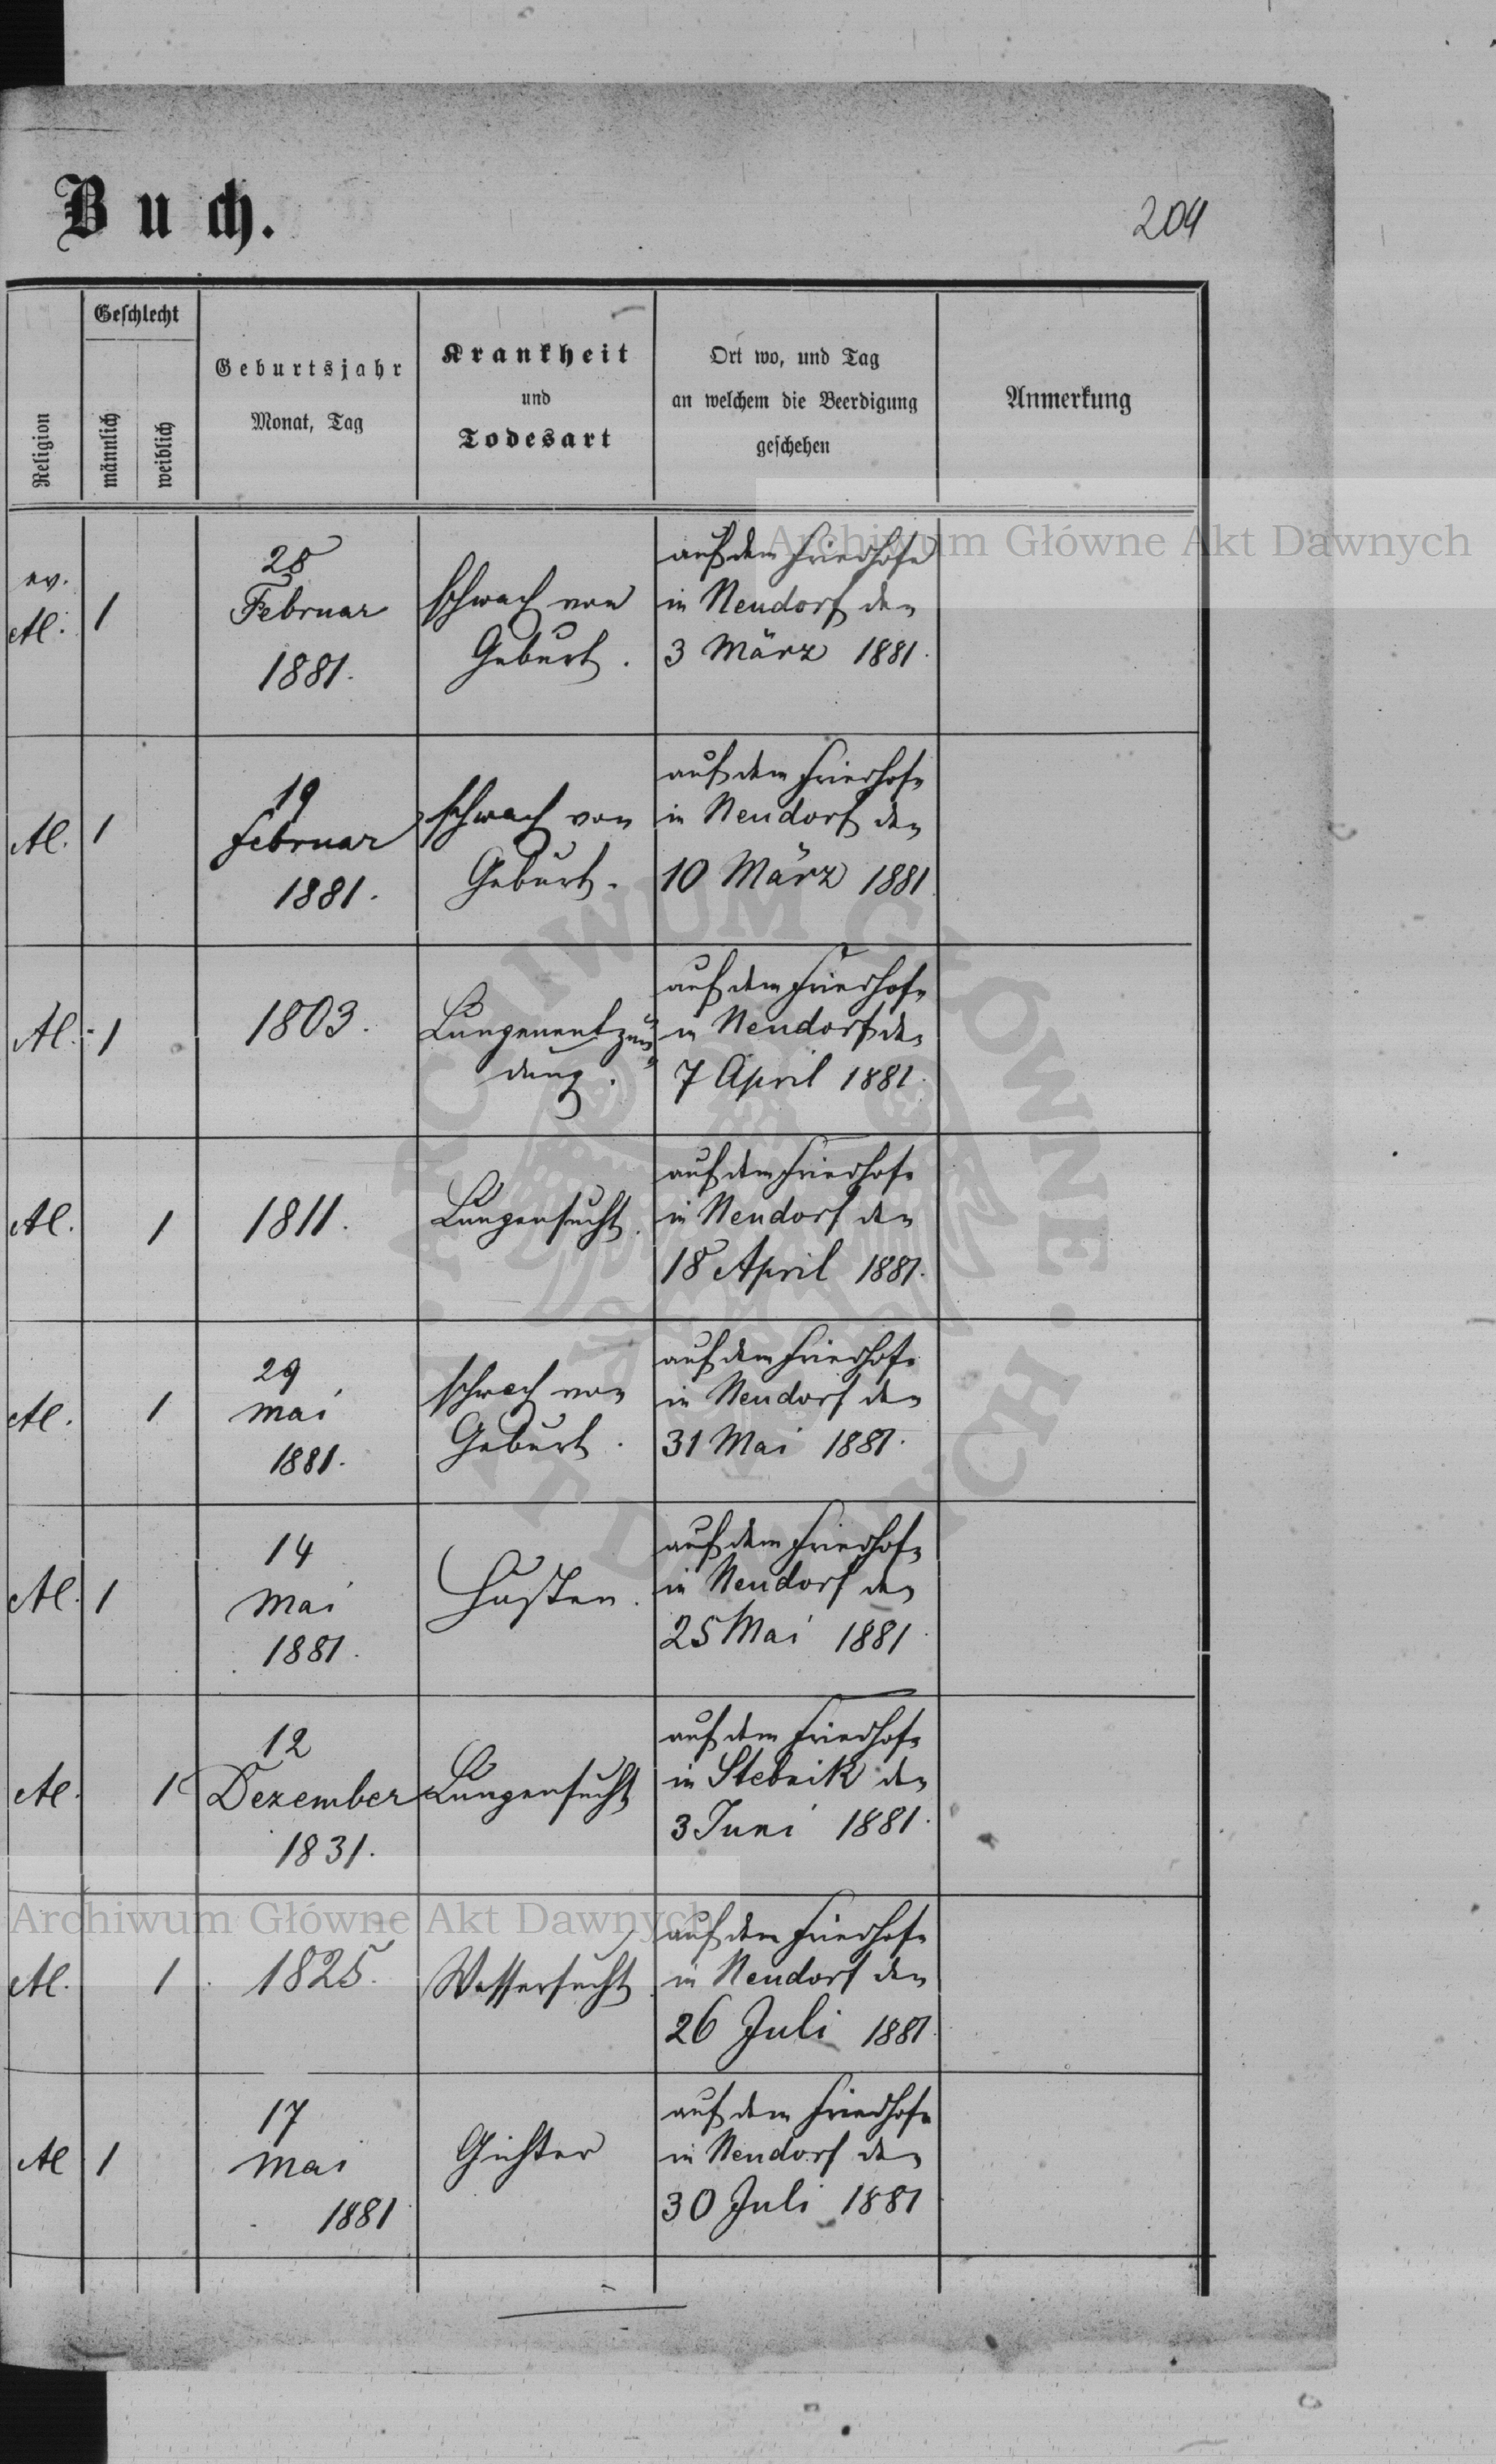 Buch.
204
Religion
Geschlecht
männlich
weiblich
Geburtsjahr
Monat, Tag
Krankheit
und
Todesart
Ort wo, und Tag
an welchem die Beerdigung
geschehen
Anmerkung
Archiwum Główne Akt Dawnych
ev.
Al.
1
28
Februar
1881.
schwach von
Geburt.
auf dem Friedhofe
in Neudorf den
3 März 1881.
Al.
1
19
Februar
1881.
schwach von
Geburt.
auf dem Friedhofe
in Neudorf den
10 März 1881
Al.
1
1803.
Lungenentzün
dung.
auf dem Friedhofe
in Neudorf den
7 April 1881.
Al.
1
1811.
Lungensucht.
auf dem Friedhofe
in Neudorf den
18 April 1881.
Al.
1
29
Mai
1881.
schwach von
Geburt.
auf dem Friedhofe
in Neudorf den
31 Mai 1881.
Al.
1
14
Mai
1881.
Husten.
auf dem Friedhofe
in Neudorf den
25 Mai 1881.
Al.
1
12
Dezember
1831.
Lungensucht
auf dem Friedhofe
in Stebnik den
3 Juni 1881.
Archiwum Główne Akt Dawnych
Al.
1
1825.
Wassersucht.
auf dem Friedhofe
in Neudorf den
26 Juli 1881.
Al
1
17
Mai
1881
Gichter
auf dem Friedhofe
in Neudorf den
30 Juli 1881